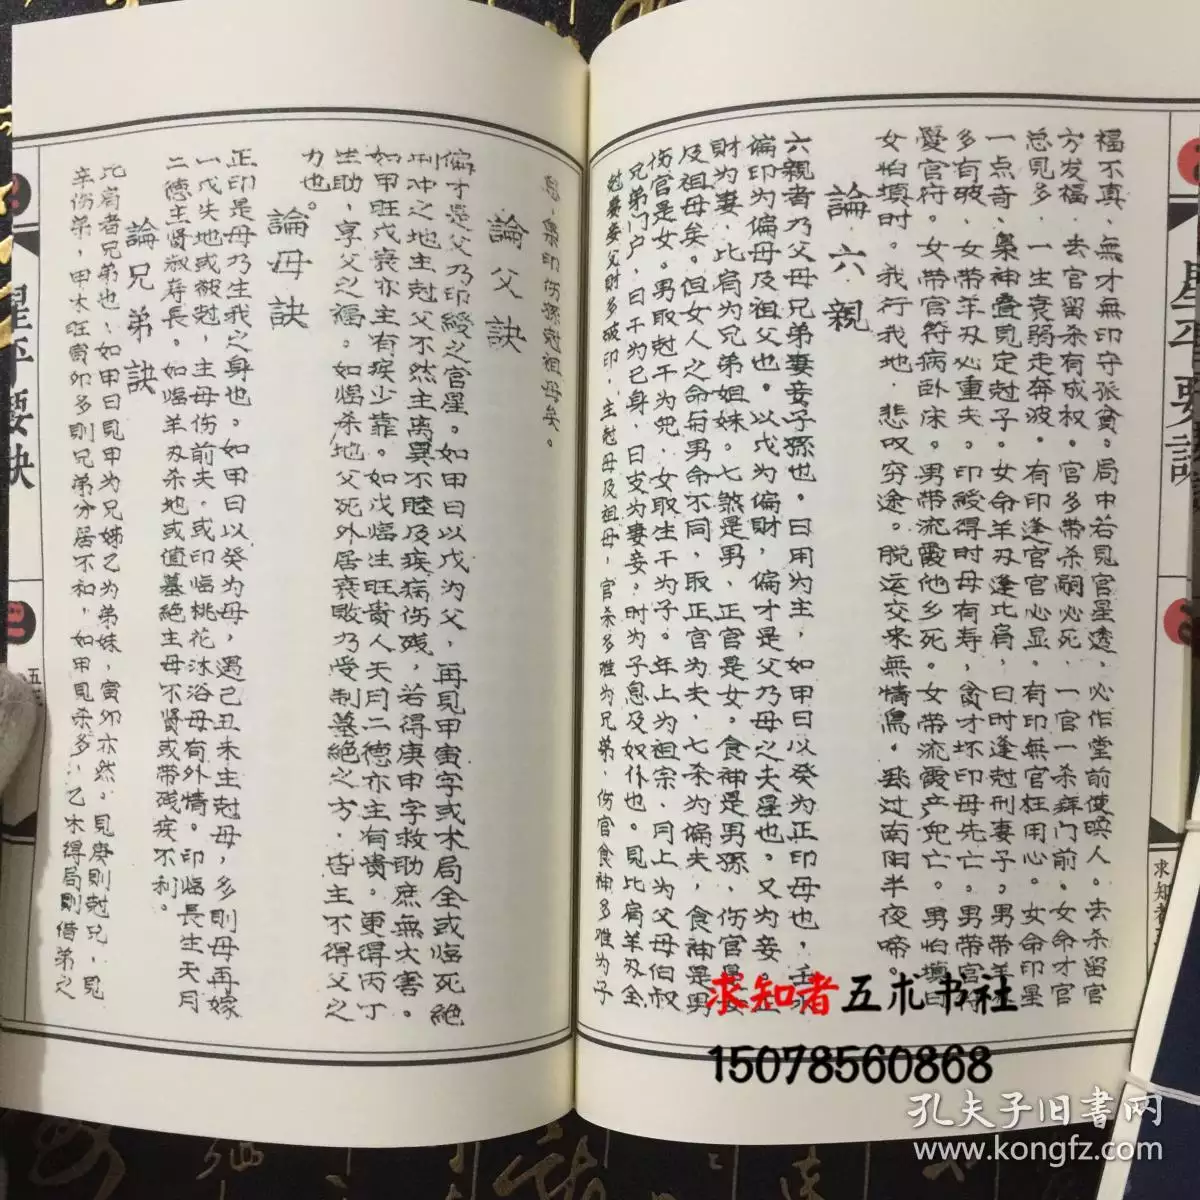 福不真，無才無印守张贫。局中若見官星透，必作堂前使喚人。去杀留官
方发福，去官留杀有成权。官多带杀嗣必死，一官一杀拜门前。女命才官
总見多，一生衰弱走奔波。有印逢官官必显，有印無官枉用心。女命印星
一点奇，枭神叠見定尅子。女命羊刃逢比肩，日时逢尅刑妻子。男带羊刃
多有破，女带羊刃必重夫。印綬得时母有寿，貪才坏印母先亡。男带官符
愛官府，女带官符病卧床。男带流霞他乡死，女带流霞产兜亡。男怕填日
女怕填时。我行我地，悲叹穷途。脱运交来無情鳥，飛过南阳半夜啼。
論六親
六親者乃父母兄弟妻妾子孫也。日用为主，如甲日以癸为正印母也，壬水
偏印为偏母及祖父也。以戊为偏財，偏才是父乃母之夫星也。又为妾。正
財为妻，比肩为兄弟姐妹。七煞是男，正官是女。食神是男孫，伤官是女
及祖母矣。但女人之命与男命不同，取正官为夫，七杀为偏夫，食神是男
伤官是女。男取尅干为兜，女取生干为子。年上为祖宗，月上为父母伯叔
兄弟门户，日干为已身，日支为妻妾，时为子息及奴仆也。見比肩羊刃全
尅妻妾父財多破印，主尅母及祖母，官杀多难为兄弟，伤官食神多难为子
息，枭印伤孫尅祖母矣。
論父訣
偏才是父乃印綬之官星。如甲日以戊为父，再見甲寅字或木局全或临死絕
刑冲之地主尅父不然主离異不睦及疾病伤残，若得庚申字救助庶無大害。
如甲旺戊衰亦主有疾少靠。如戊临生旺貴人天月二德亦主有貴。更得丙丁
生助，享父之福。如临杀地父死外居衰敗乃受制墓絕之方，皆主不得父之
力也。
論母訣
正印是母乃生我之身也。如甲日以癸为母，遇己丑未主尅母，多則母再嫁
一戊失地或被尅，主母伤前夫，或印临桃花沐浴母有外情。印临長生天月
二德主賢淑寿長。如临羊刃杀地或值墓絕主母不賢或带残疾不利。
論兄弟訣
比肩者兄弟也，如甲日見甲为兄姊乙为弟妹，寅卯亦然。見庚則尅兄，見
辛伤弟，甲木旺寅卯多則兄弟分居不和，如甲見杀多，乙木得局則借弟之
星平要訣
求知者
求知者五术书社
15078560868
孔夫子旧書网
www.kongfz.com